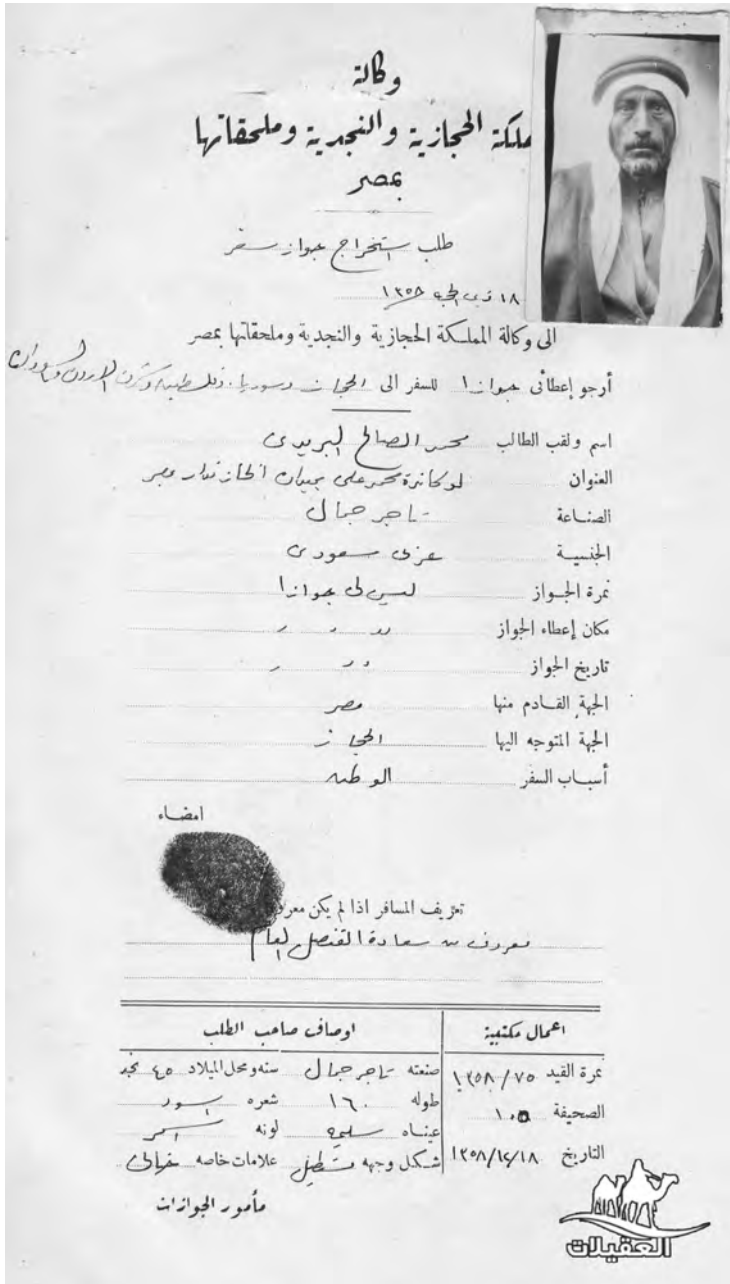 وكالة
مملكة الحجازية والنجدية وملحقاتها
بمصر
طلب استخراج جواز سفر
١٨ ذي الحجة ١٣٥٨
الى وكالة المملكة الحجازية والنجدية وملحقاتها بمصر
أرجو إعطائى جوازا للسفر الى الحجاز وسوريا وفلسطين وشرق الاردن والسودان
اسم ولقب الطالب محمد الصالح البريدى
العنوان لوكاندة محمد على بميدان الخازندار بمصر
الصناعة تاجر جمال
الجنسية عربى سعودى
نمرة الجواز ليس لى جوازا
مكان إعطاء الجواز
تاريخ الجواز
الجهة القادم منها مصر
الجهة المتوجه اليها الحجاز
أسباب السفر الوطن
امضاء
تعريف المسافر اذا لم يكن معرو
معروف من سعادة القنصل العام
اعمال مكتبية
اوصاف صاحب الطلب
نمرة القيد ٧٥/١٣٥٨
صنعته تاجر جمال سنه ومحل الميلاد ٤٥ نجد
الصحيفة
طوله ١٦٠ شعره اسود
عيناه سليمه لونه اسمر
التاريخ ١٨/١٢/١٣٥٨
شكل وجهه مستطيل علامات خاصه
مأمور الجوازات
العقيلات